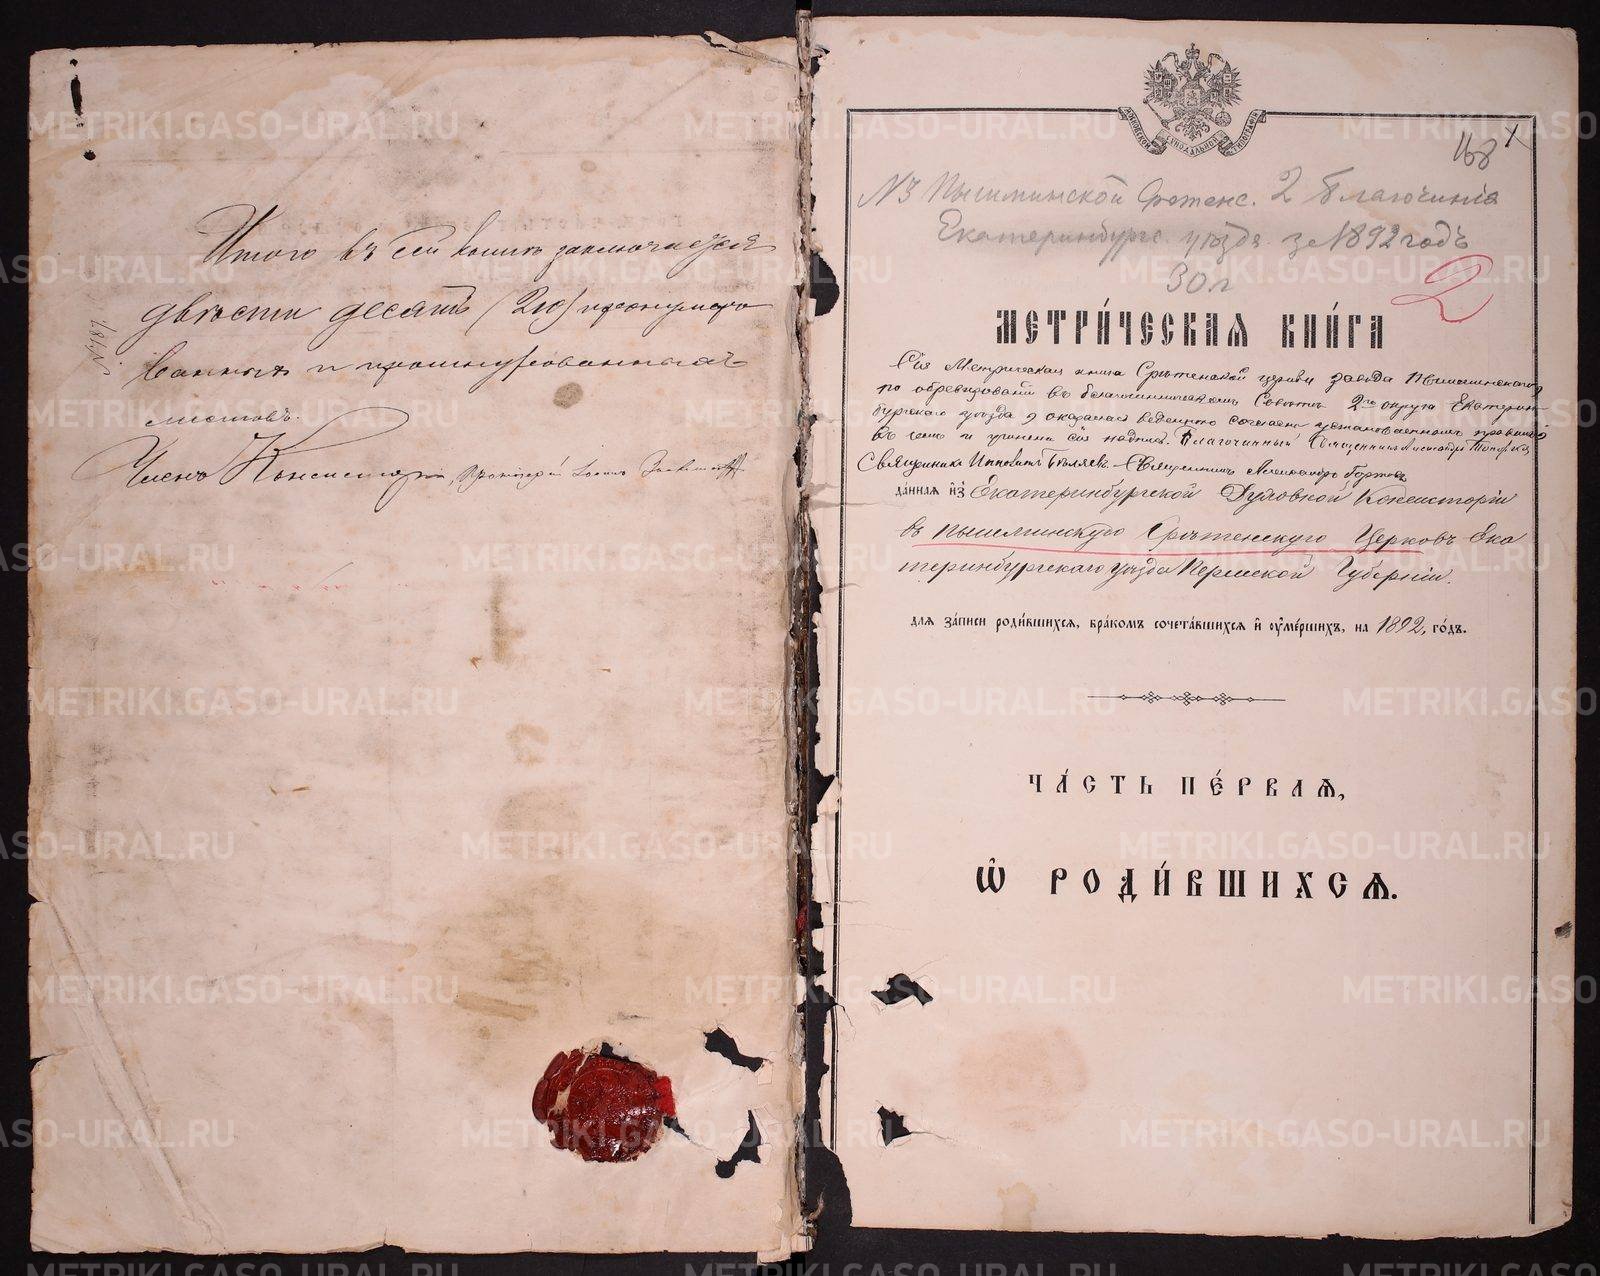 Итого въ сей книгѣ заключается
двѣсти десять (210) пронумеро
ванныхъ и прошнурованныхъ
листовъ.
Членъ Консисторіи, Протоіерей
МОСКОВСКОЙ СѴНОДАЛЬНОЙ ТИПОГРАФІИ
168
Пышминской Срѣтенс. 2 благочинія
Екатеринбургс. уѣзда за 1892 годъ
30 л
2
МЕТРИ́ЧЕСКАѦ КНИ́ГА
Сія Метрическая книга Срѣтенской церкви завода Пышминскаго
по обревизованіи въ благочинническомъ Совѣтѣ 2го округа Екатерин
бургскаго уѣзда оказалась веденною согласно установленнымъ правиламъ
въ чемъ и учинена сія надпись. Благочинный Священникъ
Священникъ Ипполитъ Бѣляевъ. Священникъ Александръ
да́нная и҆зъ Екатеринбургской Духовной Консисторіи
въ Пышминскую Срѣтенскую Церковь Ека
теринбургскаго уѣзда Пермской Губерніи.
для за́писи роди́вшихся, бра́комъ сочета́вшихся и҆ оу҆ме́ршихъ, на 1892, го́дъ.
ЧА́СТЬ ПЕ́РВАѦ,
Ѡ҆ РОДИ́ВШИХСѦ.
METRIKI.GASO-URAL.RU